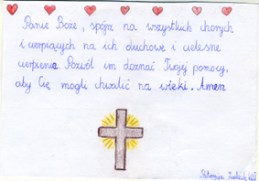 Panie Boże, spójrz na wszystkich chorych
i cierpiących na ich duchowe i cielesne
cierpienia Pozwól im doznać Twojej pomocy,
aby Cię mogli chwalić na wieki. Amen